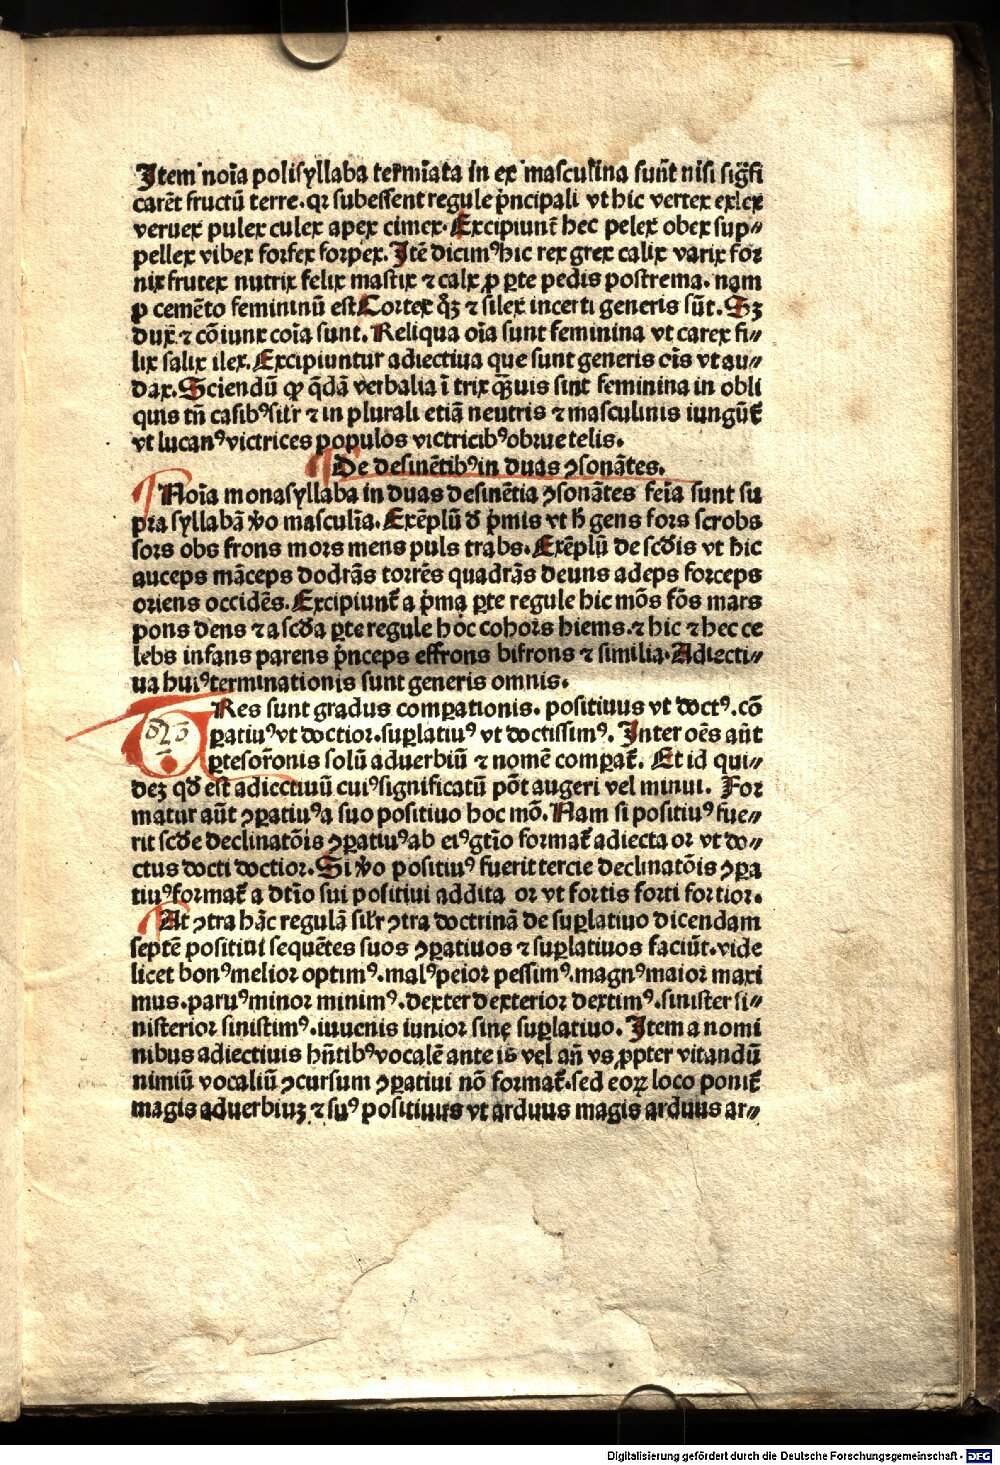 Item noīa polisyllaba terminata in ex masculina sunt nisi signfi
carēt fructū terre. qꝛ subessent regule p̄ncipali vt hic vertex exlex
veruex pulex culex apex cimex. Excipiunt̄ hec pelex obex sup⸗
pellex vibex forfex forpex. Itē dicimꝰ hic rex grex calix varix for
nix frutex nutrix felix mastix ⁊ calx ꝓ ꝑte pedis postrema. nam
ꝓ cemēto femininū est Cortex qͦꝫ ⁊ silex incerti generis sūt. Sꝫ
dux ⁊ cōiunx coīa sunt. Reliqua oīa sunt feminina vt carex fi⸗
lix salix ilex. Excipiuntur adiectiua que sunt generis oīs vt au⸗
dax. Sciendū ꝙ q̄dā verbalia ī trix qͣꝫuis sint feminina in obli
quis tn̄ casibꝰ silʼr ⁊ in plurali etiā neutris ⁊ masculinis iungūt̄
vt lucanꝰ victrices populos victricibꝰ obrue telis.
De desinētibꝰ in duas ꝯsonātes.
Noīa monasyllaba in duas desinētia ꝯsonātes feīa sunt su
pra syllabā v̄o masculīa. Exēplū d̄ p̄mis vt h̄ gens fors scrobs
sors obs frons mors mens puls trabs. Exēplū de scd̄is vt hic
auceps māceps dodrās torrēs quadrās deuns adeps forceps
oriens occidēs. Excipiunt̄ a p̄ma ꝑte regule hic mōs fōs mars
pons dens ⁊ a scd̄a ꝑte regule hoc cohors hiems. ⁊ hic ⁊ hec ce
lebs infans parens p̄nceps effrons bifrons ⁊ similia. Adiecti⸗
ua huiꝰ terminationis sunt generis omnis.
Res sunt gradus comꝑationis. positiuus vt doctꝰ. cō
ꝑatiuꝰ vt doctior. suꝑlatiuꝰ vt doctissimꝰ. Inter oēs aūt
ꝑtes orōnis solū aduerbiū ⁊ nomē comꝑat̄. Et id qui⸗
deꝫ qd̄ est adiectiuū cuiꝰ significatū pōt augeri vel minui. For
matur aūt ꝯꝑatiuꝰ a suo positiuo hoc mō. Nam si positiuꝰ fue⸗
rit scd̄e declinatōis ꝯꝑatiuꝰ ab eiꝰ gtīo format̄ adiecta or vt do⸗
ctus docti doctior. Si v̄o positiuꝰ fuerit tercie declinatōis ꝯꝑa
tiuꝰ format̄ a dtīo sui positiui addita or vt fortis forti fortior.
At ꝯtra hāc regulā silʼr ꝯtra doctrinā de suꝑlatiuo dicendam
septē positiui sequētes suos ꝯꝑatiuos ⁊ suꝑlatiuos faciūt. vide
licet bonꝰ melior optimꝰ. malꝰ peior pessimꝰ. magnꝰ maior maxi
mus. paruꝰ minor minimꝰ. dexter dexterior dextimꝰ. sinister si⸗
nisterior sinistimꝰ. iuuenis iunior sine suꝑlatiuo. Item a nomi
nibus adiectiuis hn̄tibꝰ vocalē ante is vel an̄ vs ꝓpter vitandū
nimiū vocaliū ꝯcursum ꝯꝑatiui nō format̄. sed eoꝝ loco ponit̄
magis aduerbiuꝫ ⁊ suꝰ positiuus vt arduus magis arduus ar⸗
Digitalisierung gefördert durch die Deutsche Forschungsgemeinschaft - DFG